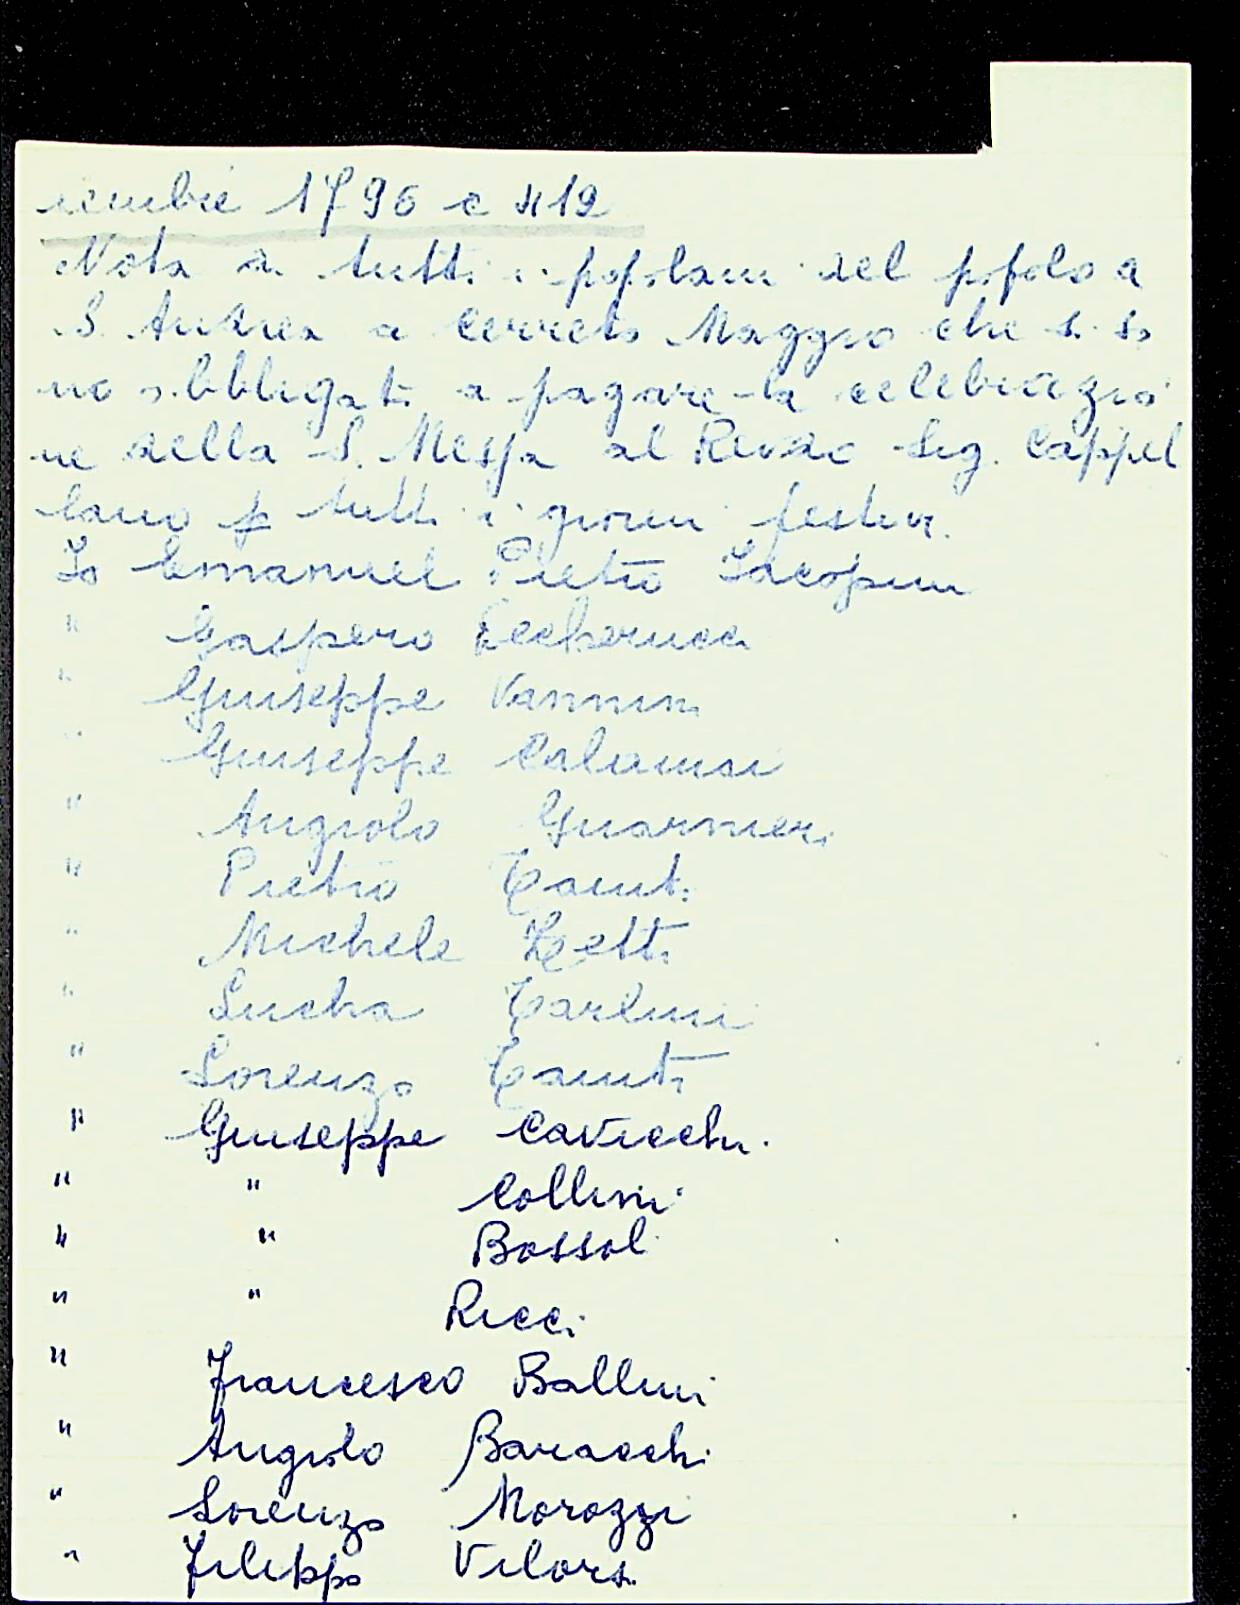 icembre 1796 c 412
Nota di tutti i popolani del popolo a
S. Andrea a Cerreto Maggio che si so
no obbligati a pagare la celebrazio
ne della S. Messa al Revdo Sig. Cappel
lano p tutti i giorni festivi.
Io Emanuel Pietro Iacopini
" Gaspero Eccherucci
" Giuseppe Vannini
" Giuseppe Calamai
" Angiolo Guarnieri
" Pietro Tanti
" Michele Zetti
" Lucha Tarlini
" Lorenzo Tanti
" Giuseppe Cavicchi.
" " Collini
" " Bossoli
" " Ricci
" Francesco Ballini
" Angiolo Baracchi
" Lorenzo Morozzi
" Filippo Vilors